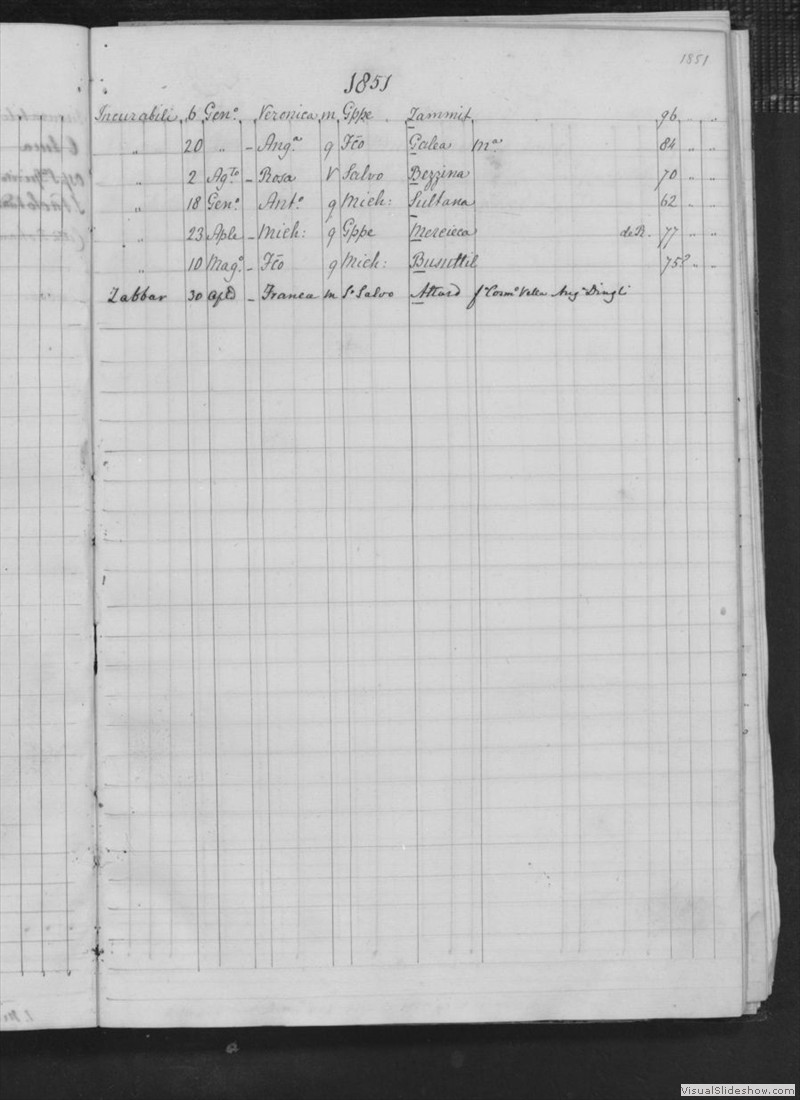 1851
1851
Incurabili 6 Genº. Veronica m Gppe Zammit 96 „ „
„ 20 „ - Angª q Fco Galea Mª 84 „ „
„ 2 Agto - Rosa V Salvo Bezzina 70 „ „
„ 18 Genº. Antº q Mich: Sultana 62 „ „
„ 23 Aple - Mich: q Gppe Mercieca de R. 77 „ „
„ 10 Magº. - Fco q Mich: Busuttil 75? „ „
Zabbar 30 - Franca m Salvo Attard Vella Angª Dingli
VisualSlideshow.com